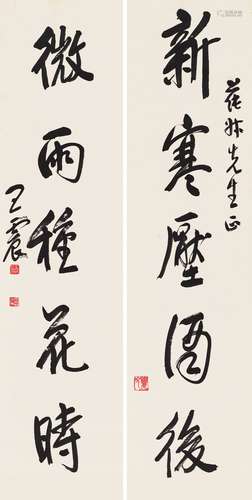 新寒壓酒後
先生正
微雨種花時
王震